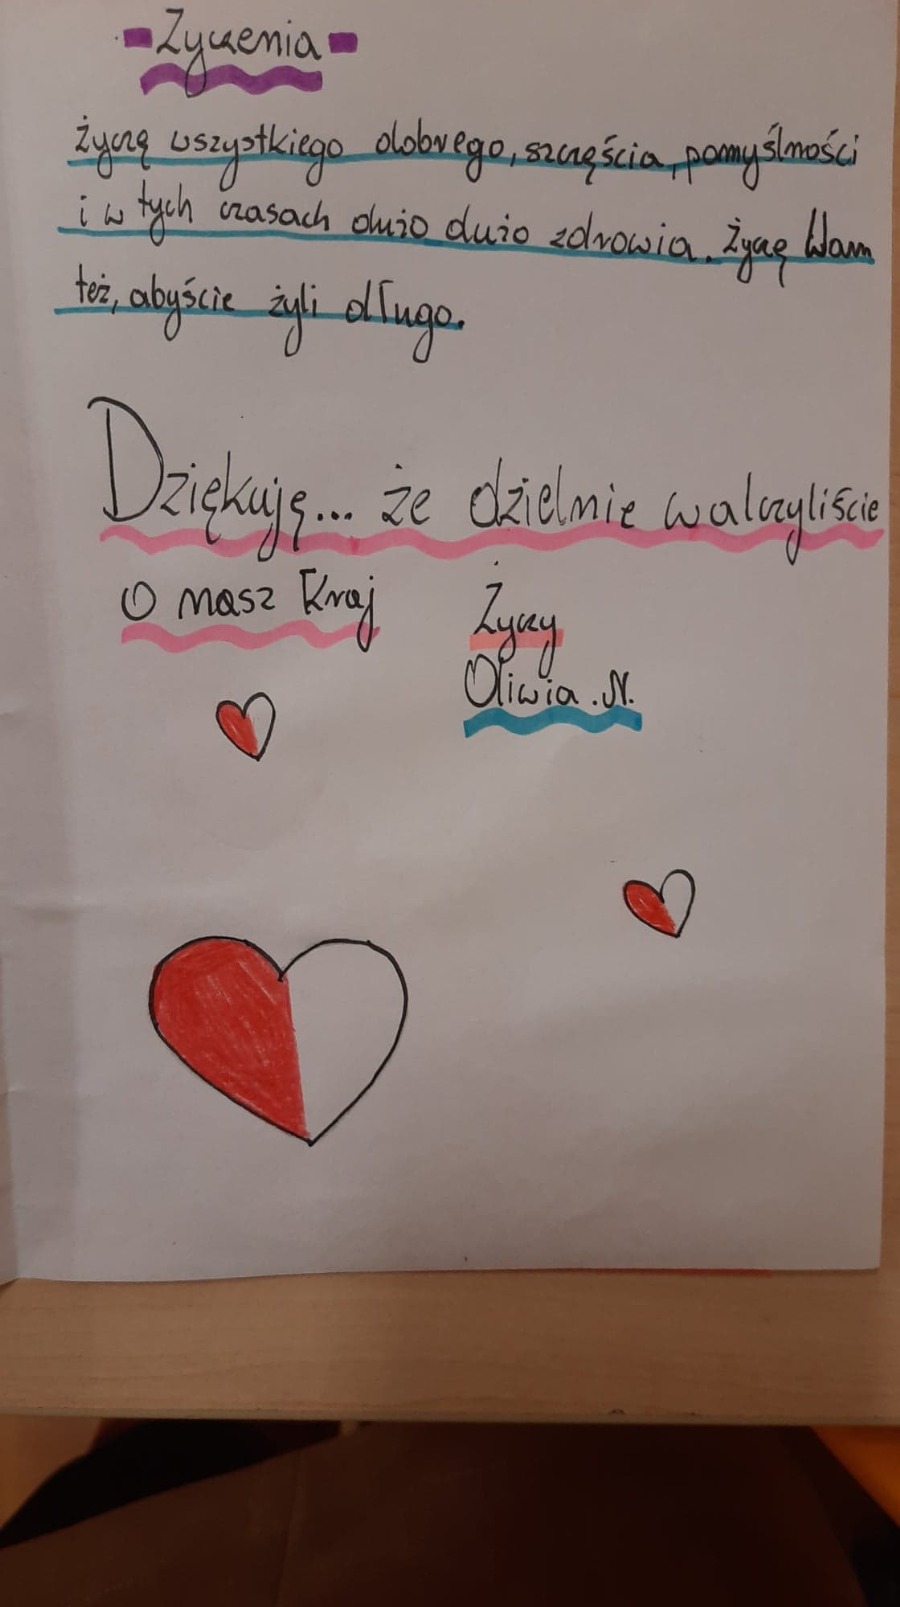 -Życzenia-
życzę wszystkiego dobrego, szczęścia, pomyślności
i w tych czasach dużo dużo zdrowia. Życzę Wam
też, abyście żyli długo.
Dziękuję... że dzielnie walczyliście
o nasz Kraj
Życzy
Oliwia .N.